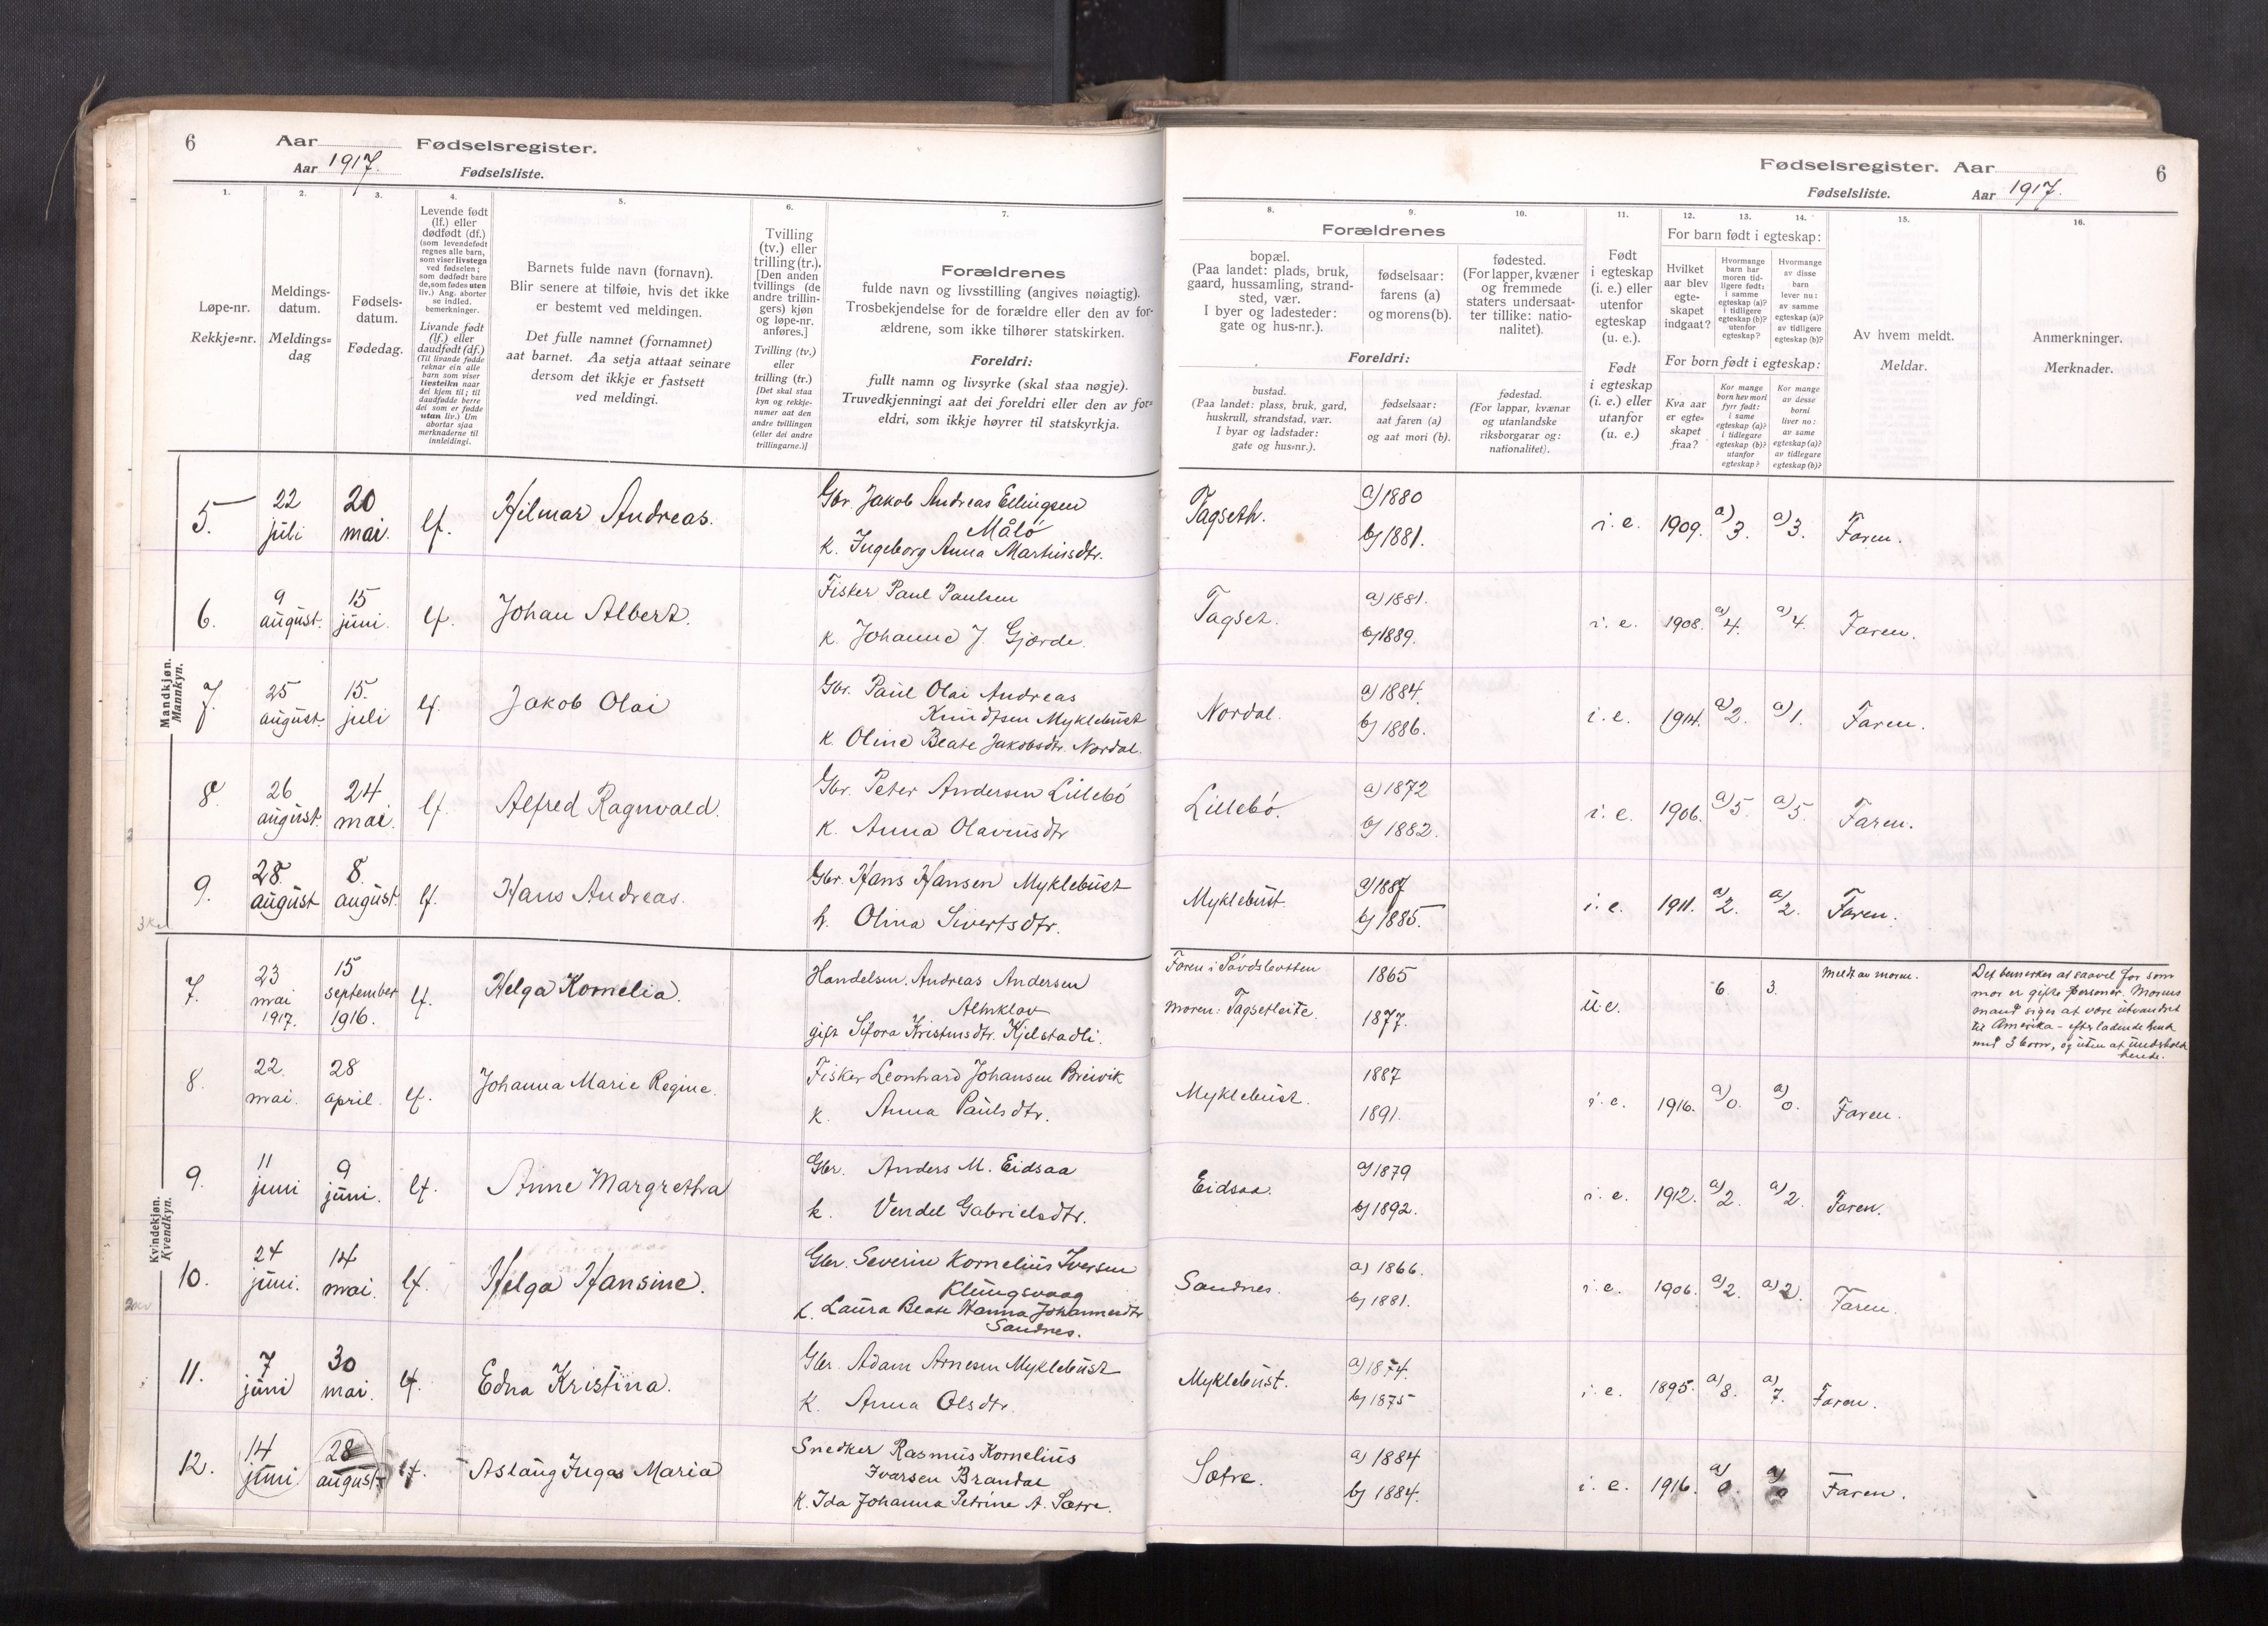 6
Aar
Fødselsregister.
Aar 1917.
Fødselsliste.
1.
2.
3.
4.
5.
6.
7.
Løpe-nr.
Rekkje=nr.
Meldings-
datum.
Meldings=
dag
Fødsels-
datum.
Fødedag.
Levende født
(lf.) eller
dødfødt (df.)
(som levendefødt
regnes alle barn,
som viser livstegn
ved fødselen;
som dødfødt bare
de, som fødes uten
liv.) Ang. aborter
se indled.
bemerkninger.
Livande født
(lf.) eller
daudfødt (df.)
(Til livande fødde
reknar ein alle
barn som viser
livsteikn naar
dei kjem til; til
daudfødde berre
dei som er fødde
utan liv.) Um
abortar sjaa
merknaderne til
innleidingi.
Barnets fulde navn (fornavn).
Blir senere at tilføie, hvis det ikke
er bestemt ved meldingen.
Det fulle namnet (fornamnet)
aat barnet. Aa setja attaat seinare
dersom det ikkje er fastsett
ved meldingi.
Tvilling
(tv.) eller
trilling (tr.).
[Den anden
tvillings (de
andre trillin-
gers) kjøn
og løpe-nr.
anføres.]
Tvilling (tv.)
eller
trilling (tr.)
[Det skal staa
kyn og rekkje-
numer aat den
andre tvillingen
(eller dei andre
trillingarne.)]
Forældrenes
fulde navn og livsstilling (angives nøiagtig).
Trosbekjendelse for de forældre eller den av for-
ældrene, som ikke tilhører statskirken.
Foreldri:
fullt namn og livsyrke (skal staa nøgje).
Truvedkjenningi aat dei foreldri eller den av for=
eldri, som ikkje høyrer til statskyrkja.
Mandkjøn.
Mannkyn.
5.
22
juli
20
mai.
lf.
Hilmar Andreas.
Gbr. Jakob Andreas Ellingsen
Målø
K. Ingeborg Anna Martinsdtr.
6.
9
august.
15
juni.
lf.
Johan Albert.
Fisker Paul Paulsen
K. Johanne J. Gjørde.
7.
25
august.
15.
juli
lf.
Jakob Olai
Gbr. Paul Olai Andreas
Knudtsen Myklebust
K. Oline Beate Jakobsdtr. Nordal.
8.
26
august.
24
mai.
lf.
Alfred Ragnvald.
Gbr. Peter Andersen Lillebø
K. Anna Olavusdtr
9.
28.
august
8.
august.
lf.
Hans Andreas.
Gbr. Hans Hansen Myklebust
h. Olina Sivertsdtr.
Kvindekjøn.
Kvendkyn.
7.
23
mai
1917.
15
september
1916.
lf.
Helga Kornelia.
Handelsm. Andreas Andersen
Almklov
gift Sefora Kristensdtr. Kjelstadli.
8.
22.
mai.
28
april.
lf.
Johanna Marie Regine.
Fisker Leonhard Johansen Breivik
K. Anna Paulsdtr.
9.
11
juni
9
juni.
lf.
Anne Margretha
Gbr. Anders M. Eidsaa
k. Vendel Gabrielsdtr.
10.
24
juni.
14
mai.
lf.
Helga Hansine.
Gbr. Severin Kornelius Iversen
Klungsvaag
K. Laura Beate Hanna Johannesdtr
Sandnes.
11.
7
juni
30
mai.
lf.
Edna Kristina.
Gbr. Adam Arnesen Myklebust
K. Anna Olsdtr.
12.
14
juni
28
august.
lf.
Aslaug Inga Maria
Snedker Rasmus Kornelius
Ivarsen Brandal
K. Ida Johanna Petrine A. Sætre.
Fødselsregister. Aar
6
Fødselsliste.
Aar 1917.
8.
9.
10.
11.
12.
13.
14.
15.
16.
Forældrenes
bopæl.
(Paa landet: plads, bruk,
gaard, hussamling, strand-
sted, vær.
I byer og ladesteder:
gate og hus-nr.).
fødselsaar:
farens (a)
og morens (b).
fødested.
(For lapper, kvæner
og fremmede
staters undersaat-
ter tillike: natio-
nalitet).
Foreldri:
bustad.
(Paa landet: plass, bruk, gard,
huskrull, strandstad, vær.
I byar og ladstader:
gate og hus=nr.).
fødselsaar:
aat faren (a)
og aat mori (b).
fødestad.
(For lappar, kvænar
og utanlandske
riksborgarar og:
nationalitet).
Født
i egteskap
(i. e.) eller
utenfor
egteskap
(u. e.).
Født
i egteskap
(i. e.) eller
utanfor
(u. e.)
For barn født i egteskap:
Hvilket
aar blev
egte-
skapet
indgaat?
Hvormange
barn har
moren tid-
ligere født:
i samme
egteskap (a)?
i tidligere
egteskap (b)?
utenfor
egteskap?
Hvormange
av disse
barn
lever nu:
av samme
egteskap (a)?
av tidligere
egteskap (b)?
For born født i egteskap:
Kva aar
er egte=
skapet
fraa?
Kor mange
born hev mori
fyrr født:
i same
egteskap (a)?
i tidlegare
egteskap (b)?
utanfor
egteskap?
Kor mange
av desse
borni
liver no:
av same
egteskap (a)?
av tidlegare
egteskap (b)?
Av hvem meldt.
Meldar.
Anmerkninger.
Merknader.
Tagseth.
a) 1880
b) 1881.
i. e.
1909.
a) 3.
a) 3.
Faren.
Tagset.
a) 1881.
b) 1889.
i. e.
1908.
a) 4.
a) 4.
Faren.
Nordal.
a) 1884.
b) 1886.
i. e.
1914.
a) 2.
a) 1.
Faren.
Lillebø.
a) 1872
b) 1882.
i. e.
1906.
a) 5
a) 5.
Faren.
Myklebust.
a) 1887
b) 1885.
i. e.
1911.
a) 2.
a) 2.
Faren.
Faren i
Moren: Tagsetleite.
1865
1877.
u.e.
6
3.
Meldt av moren.
Det bemerkes at saavel far som
mor er gifte personer. Morens
mand siges at være utvandret
til Amerika – efterladende hende
med 3 born, og uten at underholde
hende.
Myklebust.
1887
1891.
i. e.
1916.
a) 0.
a) 0.
Faren.
Eidsaa.
a) 1879
b) 1892.
i. e.
1912.
a) 2.
a) 2.
Faren.
Sandnes.
a) 1866.
b) 1881.
i. e.
1906.
a) 2.
a) 2.
Faren.
Myklebust.
a) 1874.
b) 1875
i. e.
1895.
a) 8.
a) 7.
Faren.
Sætre.
a) 1884
b) 1884.
i. e.
1916.
a) 0.
a) 0
Faren.